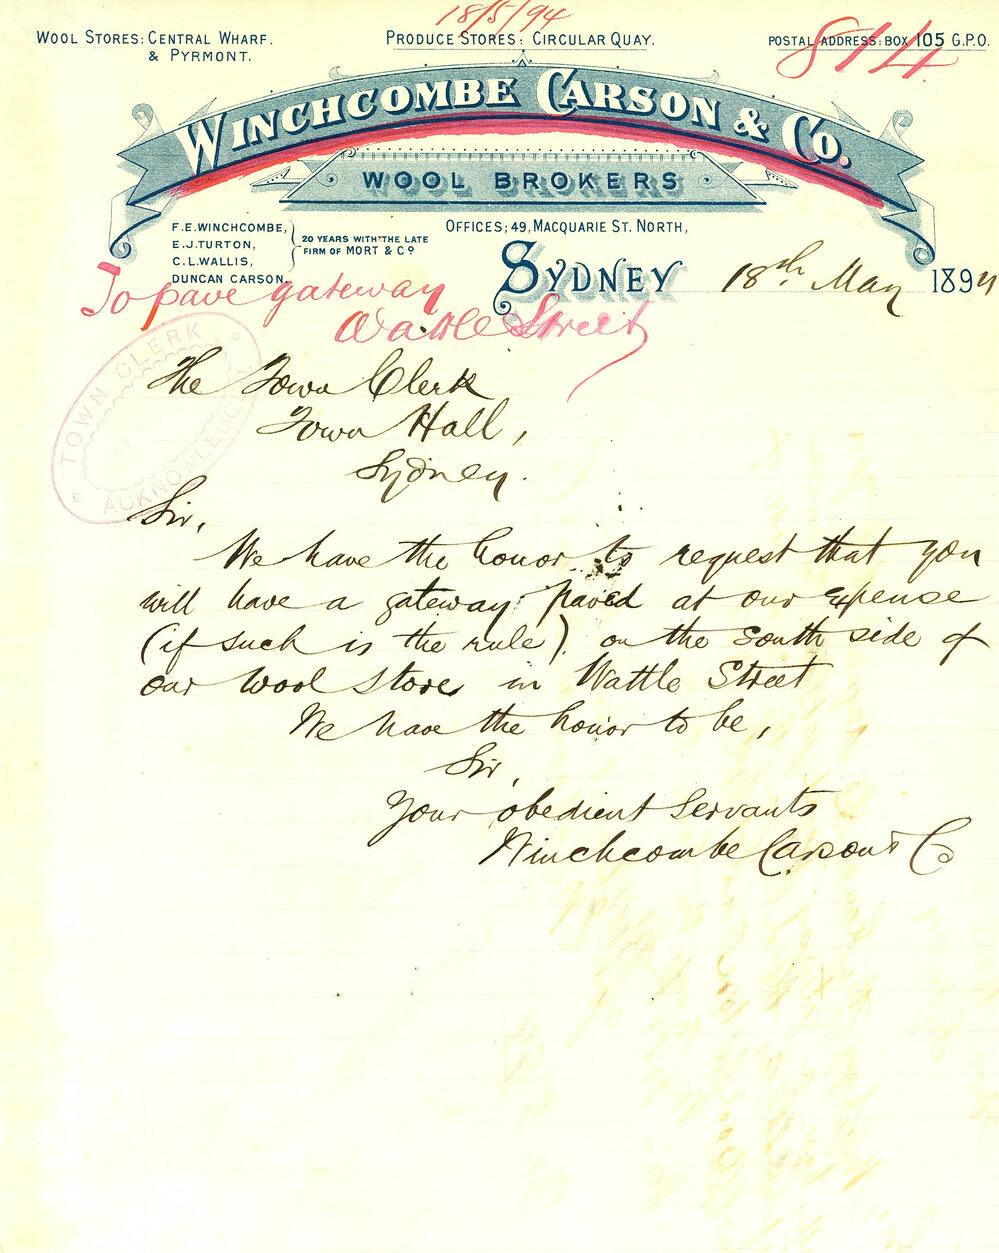 18/5/94
WOOL STORES: CENTRAL WHARF.
& PYRMONT.
PRODUCE STORES: CIRCULAR QUAY.
POSTAL ADDRESS: BOX 105 G.P.O.
814
WINCHCOMBE CARSON & CO.
WOOL BROKERS
F.E. WINCHCOMBE,
E.J. TURTON,
C.L. WALLIS,
DUNCAN CARSON.
20 YEARS WITH THE LATE
FIRM OF MORT & Co
OFFICES; 49, MACQUARIE ST. NORTH,
SYDNEY 18th May 1894
To pave gateway
Wattle Street
TOWN CLERK
ACKNOWLEDGED
The Town Clerk
Town Hall,
Sydney.
Sir,
We have the honor to request that you
will have a gateway paved at our expense
(if such is the rule) on the south side of
our wool store in Wattle Street
We have the honor to be,
Sir,
Your obedient servants
Winchcombe Carson & Co